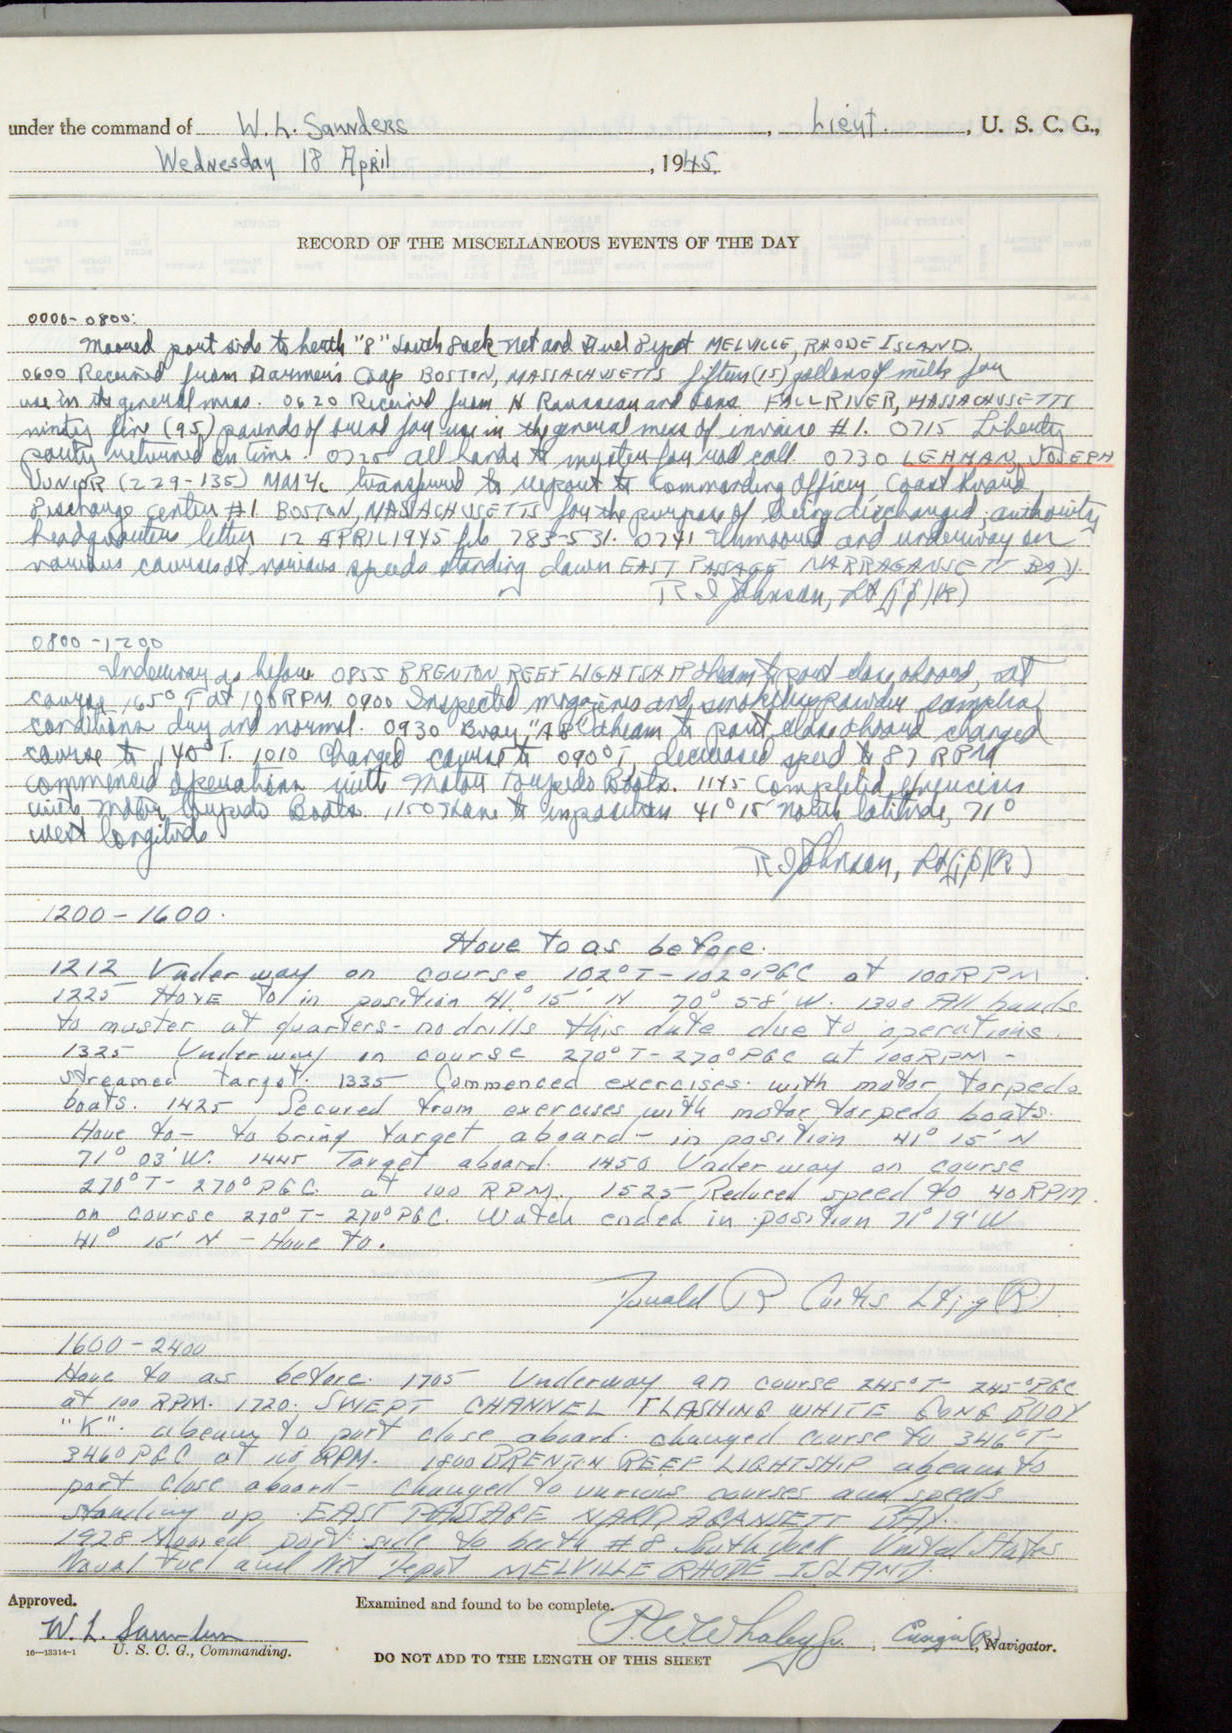 under the command of W. L. Saunders, Lieut., U. S. C. G.,
Wednesday 18 April, 1945.
RECORD OF THE MISCELLANEOUS EVENTS OF THE DAY
0000-0800:
Moored port side to berth "8" South Dock Net and Fuel Depot MELVILLE, RHODE ISLAND.
0600 Received from Coop BOSTON, MASSACHUSETTS fifteen (15) gallons of milk for
use in the general mess. 0620 Received from and Sons FALL RIVER, MASSACHUSETTS
ninety five (95) pounds of bread for use in the general mess of invoice #1. 0715 Liberty
party returned on time. 0725 All hands to muster for roll call. 0730 LEHMAN, JOSEPH
JUNIOR (229-135) transferred to report to Commanding Officer, Coast Guard
Discharge Center #1 BOSTON, MASSACHUSETTS for the purpose of being discharged; authority
headquarters letter 12 APRIL 1945 file 783-531. 0741 Unmoored and underway on
various courses at various speeds standing down EAST PASSAGE NARRAGANSETT BAY.
R I Johnson, Lt (jg)(R)
0800-1200
Underway as before 0855 BRENTON REEF LIGHTSHIP abeam to port close aboard, set
course 165° T at 100 RPM. 0900 Inspected magazines and smokeless powder samples
conditions dry and normal. 0930 Buoy "A8" abeam to port, close aboard changed
course to 140° T. 1010 Changed course to 090° T, decreased speed to 87 RPM
commenced operations with Motor Torpedo Boats. 1145 Completed exercises
with Motor Torpedo Boats. 1150 Hove to in position 41° 15 North latitude, 71°
west longitude.
R I Johnson, Lt (jg)(R)
1200-1600.
Hove to as before.
1212 Underway on course 102° T-102° PGC at 100 RPM
1225 HOVE to in position 41° 15' N 70° 58' W. 1300 All hands
to muster at quarters- no drills this date due to operations.
1325 Underway on course 270° T- 270° PGC at 100 RPM -
streamed target. 1335 Commenced exercises with motor torpedo
boats. 1425 Secured from exercises with motor torpedo boats.
Hove to- to bring target aboard- in position 41° 15' N
71° 03' W. 1445 Target aboard. 1450 Underway on course
270° T- 270° PGC. at 100 RPM. 1525 Reduced speed to 40 RPM.
on course 270° T- 270° PGC. Watch ended in position 71° 19' W
41° 15' N - Hove to.
Donald R Lt jg (R)
1600-2400
Hove to as before. 1705 Underway on course 245° T- 245° PGC
at 100 RPM. 1720. SWEPT CHANNEL FLASHING WHITE GONG BUOY
"K". abeam to port close aboard. changed course to 346° T-
346° PGC at 100 RPM. 1800 BRENTON REEF LIGHTSHIP abeam to
port close aboard- changed to various courses and speeds
standing up EAST PASSAGE NARRAGANSETT BAY.
1928 Moored port side to berth #8 South dock United States
Naval Fuel and Net Depot MELVILLE RHODE ISLAND.
Approved. Examined and found to be complete.
W. L. Saunders P. W. Whaley Jr., Ensign (R), Navigator.
16-13314-1 U. S. C. G., Commanding.
DO NOT ADD TO THE LENGTH OF THIS SHEET